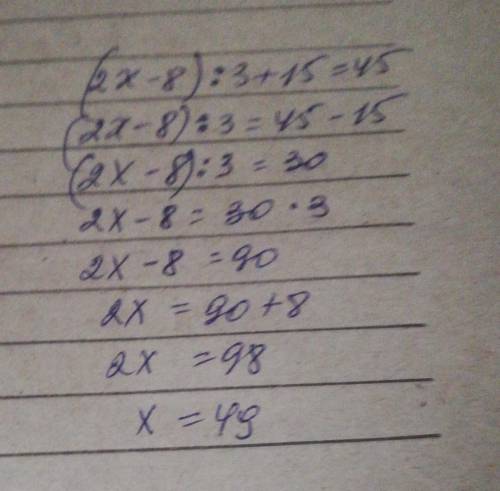 (2x-8):3+15=45
(2x-8):3=45-15
(2x-8):3=30
2x-8=30·3
2x-8=90
2x=90+8
2x=98
x=49